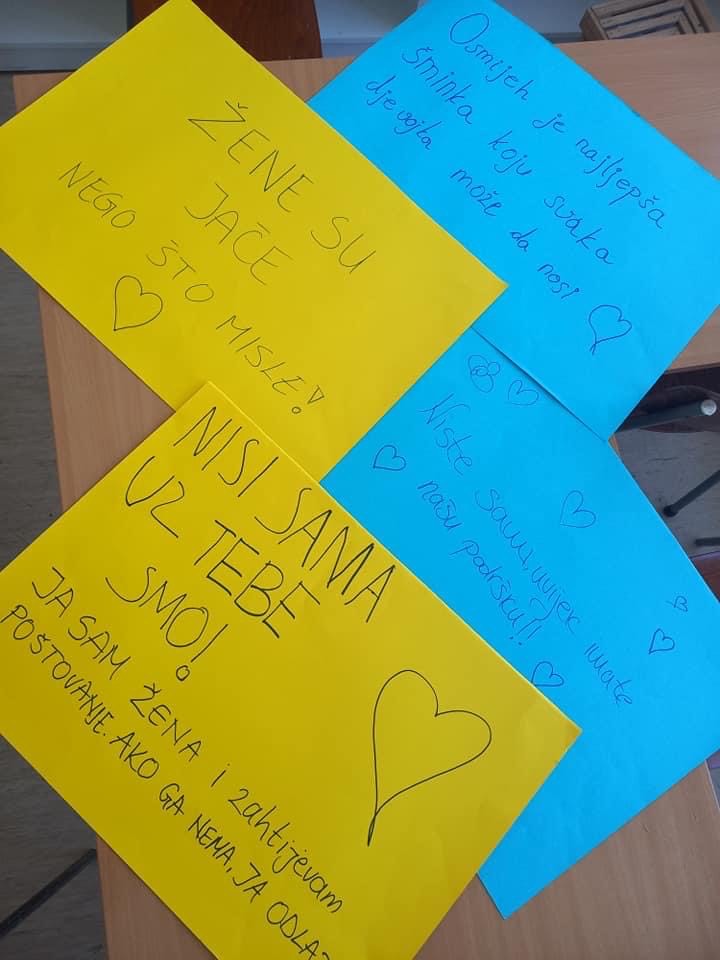 ŽENE SU
JAČE
NEGO ŠTO MISLE!
Osmijeh je najljepša
šminka koju svaka
djevojka može da nosi
Niste sami, uvijek imate
našu podršku!!
NISI SAMA
UZ TEBE
SMO!
JA SAM ŽENA i zahtijevam
POŠTOVANJE. AKO GA NEMA, JA